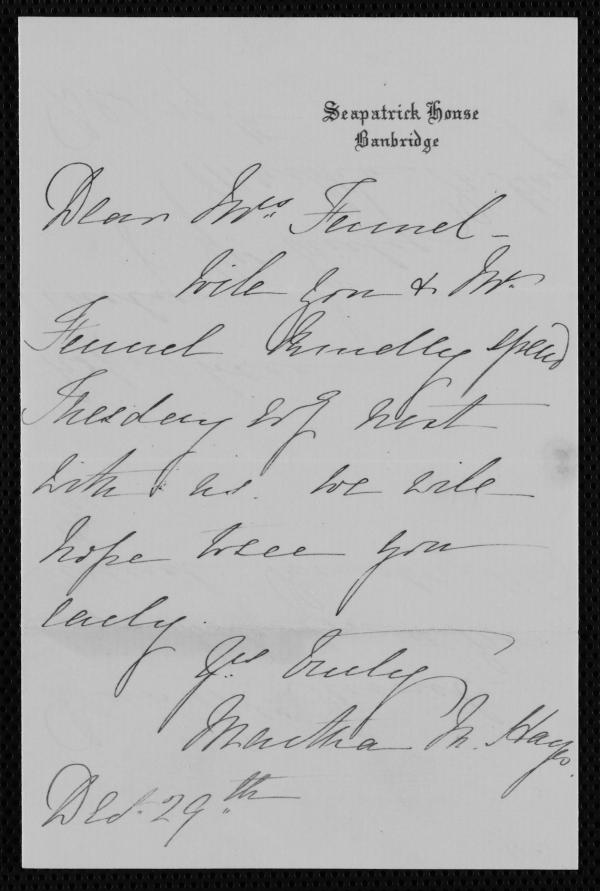 Seapatrick House
Banbridge
Dear Mrs. Fennel -
Will you & Mr.
Fennel kindly spend
Tuesday evg next
with us. We will
hope to see you
early.
Yrs. truly
Martha M. Hayes.
Dec. 29th